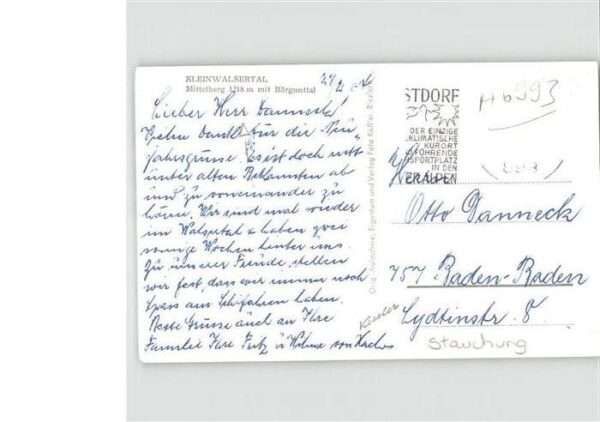 KLEINWALSERTAL
Mittelberg 1218 m mit Bärgunttal
Lieber Herr Danneck!
Vielen Dank für die Neu-
jahrsgrüsse. Es ist doch nett
unter alten Bekannten ab
und zu voneinander zu
hören. Wir sind mal wieder
im Walsertal & haben zwei
sonnige Wochen hinter uns.
Zu unserer Freude stellen
wir fest, dass wir immer noch
Spass am Schifahren haben.
Beste Grüsse auch an Ihre
Familie Ihre Fritz u
STDORF
DER EINZIGE
KLIMATISCHE
KURORT
FÜHRENDE
SPORTPLATZ
IN DEN
ER ALPEN
Herrn
Otto Danneck
757 Baden-Baden
Lydtinstr. 8
Stauchung